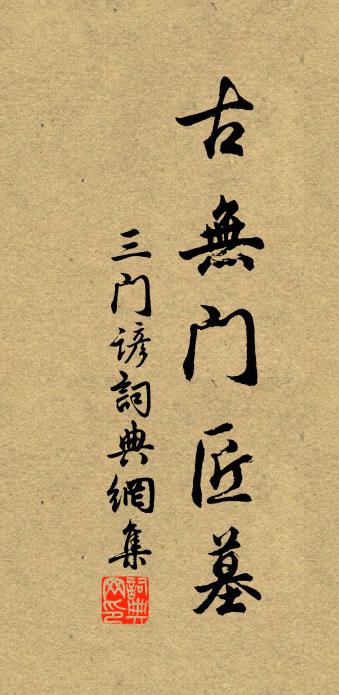 古無门匠墓
三门諺詞典網集
詞典网印